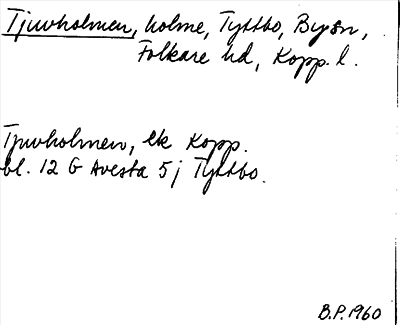 Tjuvholmen, holme, Tyttbo, By sn,
Folkare hd, Kopp. l.
Tjuvholmen, ek Kopp.
bl. 12 G Avesta 5 j Tyttbo.
B.P. 1960